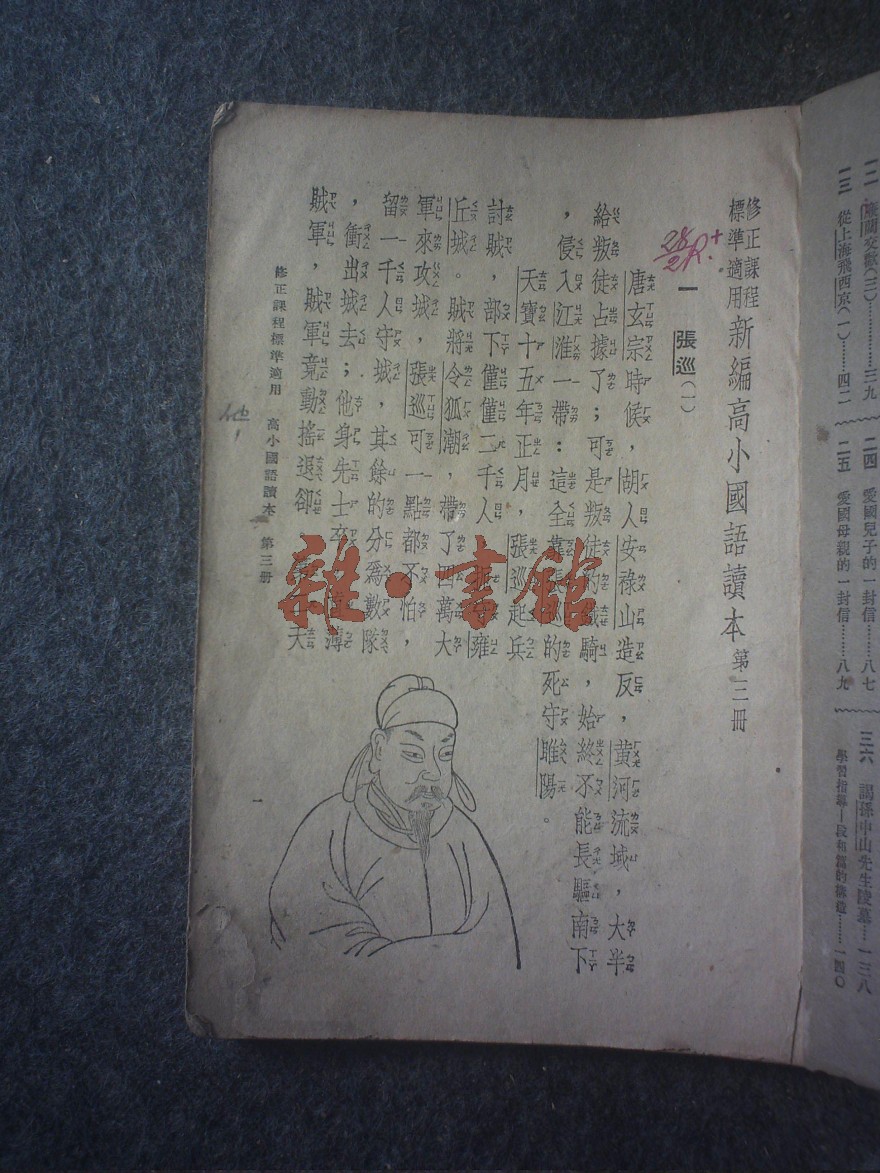 修正課程標準適用 新編高小國語讀本 第三冊
28/2 R.+
一 張巡(一)
唐玄宗時候,胡人安祿山造反,黃河流域,大半
給叛徒占據了;可是叛徒的鐵騎,始終不能長驅南下
,侵入江淮一帶:這全靠張巡的死守睢陽。
天寶十五年正月,張巡起兵
討賊,部下僅僅二千人,守雍
丘城。賊將令狐潮,帶了四萬大
軍來攻城,張巡可一點都不怕,
留一千人守城,其餘的分為數隊
,衝出城去;他身先士卒,薄
賊軍,賊軍竟動搖退卻。天
修正課程標準適用 高小國語讀本 第三冊
他,
一
雜·書館
交歡(三)……三九
二三 從上海飛西京(一)……四二
二四 愛國兒子的一封信……八七
二五 愛國母親的一封信……八九
三六 謁孫中山先生陵墓…一三八
學習指導—段和篇的構造……一四〇